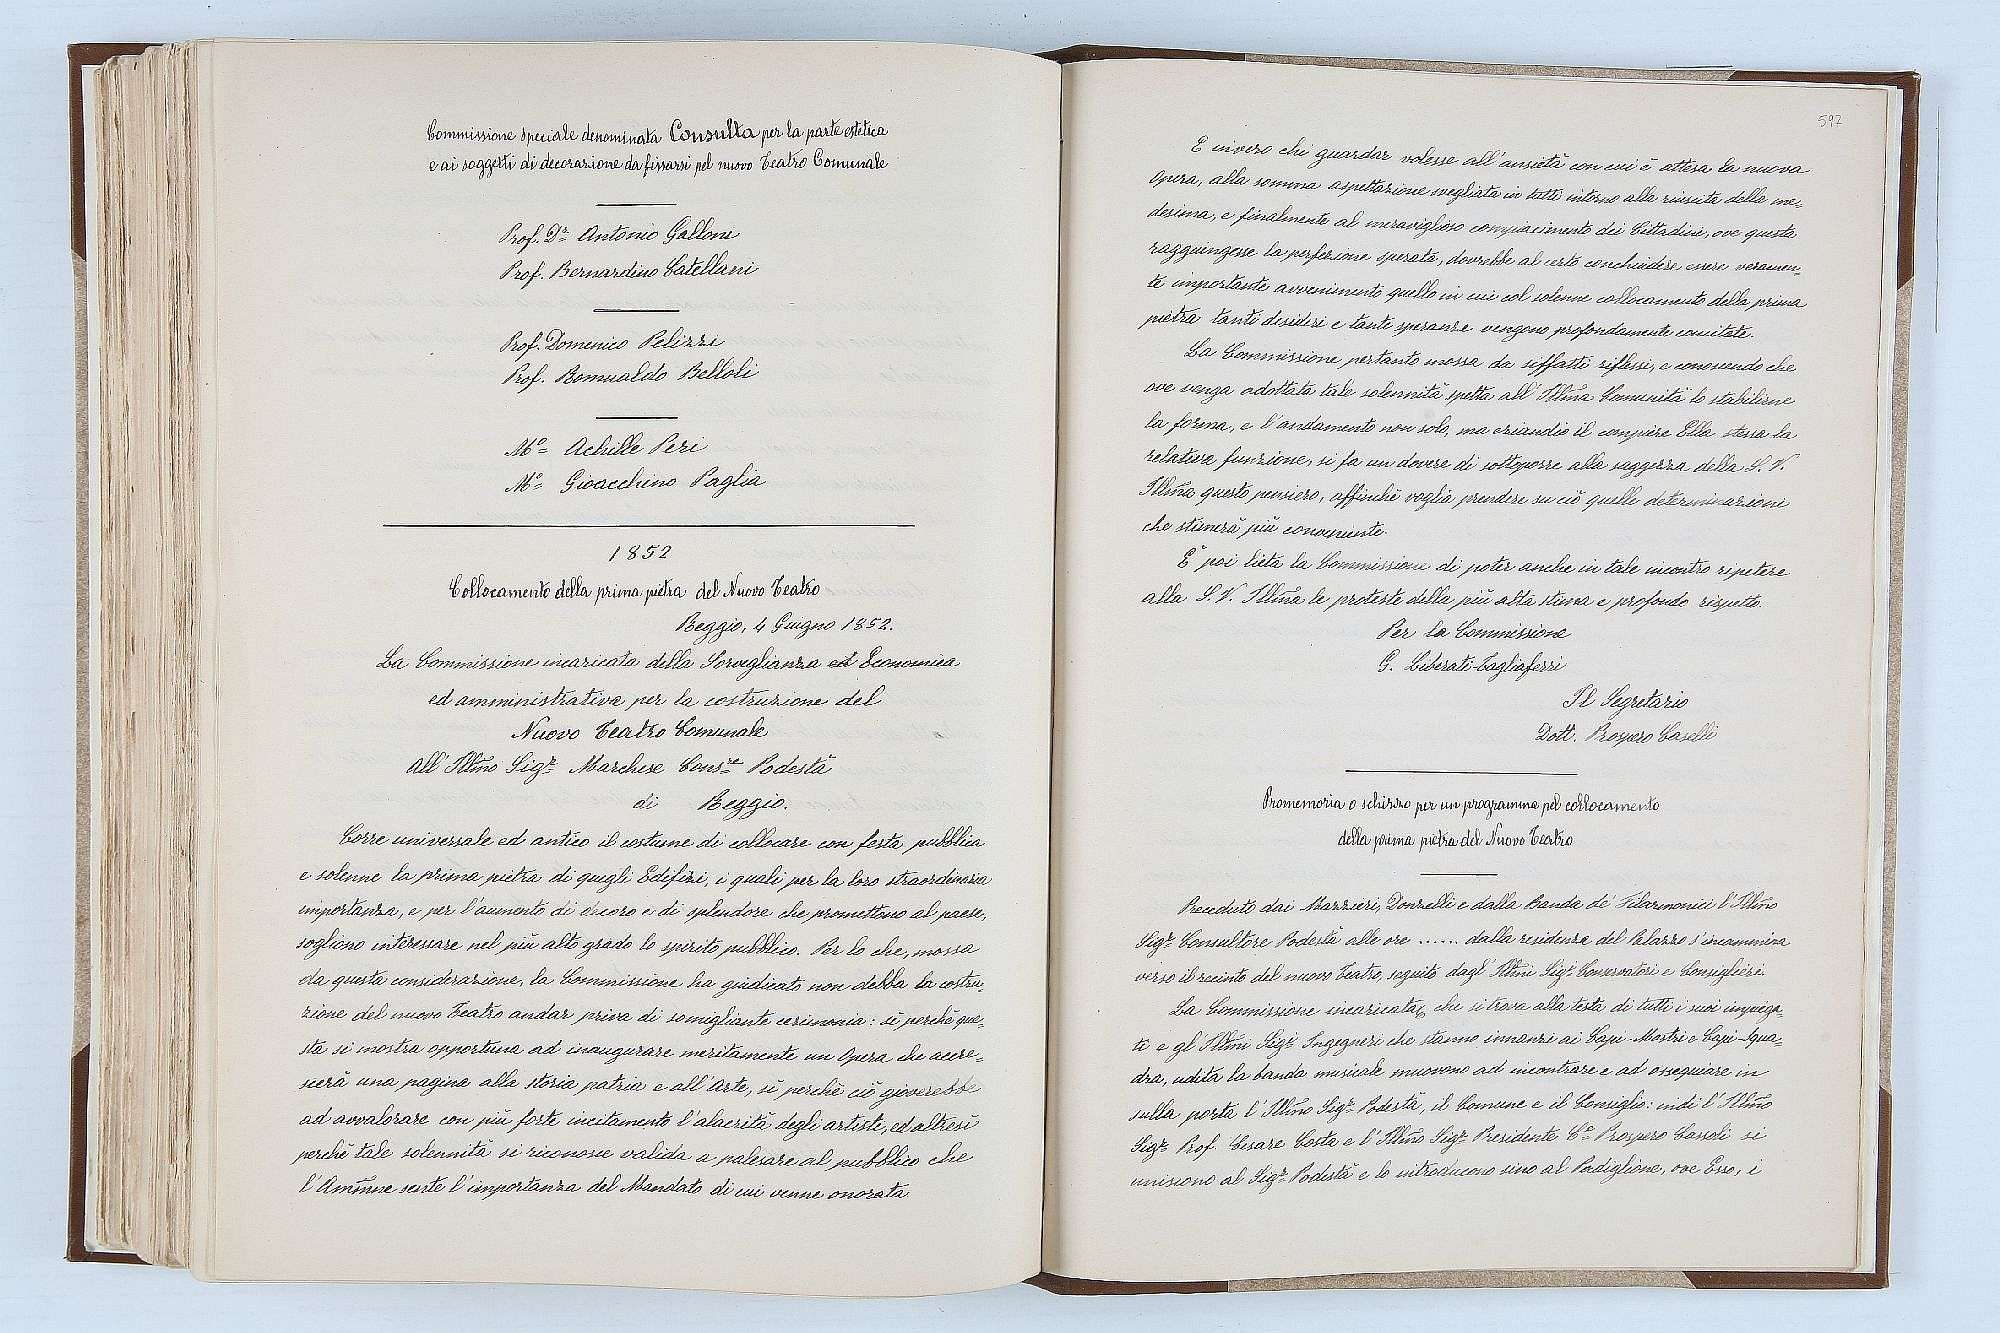 Commissione speciale denominata Consulta per la parte estetica
e ai soggetti di decorazione da fissarsi pel nuovo Teatro Comunale
Prof. Dr. Antonio Galloni
Prof. Bernardino Catellani
Prof. Domenico Pelizzi
Prof. Romualdo Belloli
Mo. Achille Peri
Mo. Gioacchino Paglia
1852
Collocamento della prima pietra del Nuovo Teatro
Reggio, 4 Giugno 1852.
La Commissione incaricata della Sorveglianza ed Economica
ed amministrativa per la costruzione del
Nuovo Teatro Comunale
All' Illmo Sigr. Marchese Consre Podestà
di Reggio.
Corre universale ed antico il costume di collocare con festa pubblica
e solenne la prima pietra di quegli Edifizi, i quali per la loro straordinaria
importanza, e per l'aumento di decoro e di splendore che promettono al paese,
sogliono interessare nel più alto grado lo spirito pubblico. Per lo che, mossa
da questa considerazione, la Commissione ha giudicato non debba la costru-
zione del nuovo Teatro andar priva di somigliante cerimonia: sì perchè que-
sta si mostra opportuna ad inaugurare meritamente un Opera che accre-
scerà una pagina alla storia patria e all'Arte, sì perchè ciò gioverebbe
ad avvalorare con più forte incitamento l'alacrità degli artisti, ed altresì
perchè tale solennità si riconosce valida a palesare al pubblico che
l'Ammne sente l'importanza del Mandato di cui venne onorata.
597
E invero chi guardar volesse all'ansietà con cui è attesa la nuova
Opera, alla somma aspettazione svegliata in tutti intorno alla riuscita della me-
desima, e finalmente al meraviglioso compiacimento dei Cittadini, ove questa
raggiungesse la perfezione sperata, dovrebbe al certo conchiudere essere veramen-
te importante avvenimento quello in cui col solenne collocamento della prima
pietra tanti desideri e tante speranze vengono profondamente concitate.
La Commissione pertanto mossa da siffatti riflessi, e conoscendo che
ove venga adottata tale solennità spetta all' Illma Comunità lo stabilirne
la forma, e l'andamento non solo, ma eziandio il compiere Ella stessa la
relativa funzione, si fa un dovere di sottoporre alla saggezza della S. V.
Illma questo pensiero, affinchè voglia prendere su ciò quelle determinazioni
che stimerà più conveniente.
È poi lieta la Commissione di poter anche in tale incontro ripetere
alla S. V. Illma le proteste della più alta stima e profondo rispetto.
Per la Commissione
G. Liberati-Tagliaferri
Il Segretario
Dott. Prospero Caselli
Promemoria o schizzo per un programma pel collocamento
della prima pietra del Nuovo Teatro
Preceduto dai Mazzieri, Donzelli e dalla Banda de' Filarmonici l' Illmo
Sigr. Consultore Podestà alle ore ...... dalla residenza del Palazzo s'incammina
verso il recinto del nuovo Teatro, seguito dagl' Illmi Sigi Conservatori e Consiglieri.
La Commissione incaricata, che si trova alla testa di tutti i suoi impiega-
ti e gl' Illmi Sigi. Ingegneri che stanno innanzi ai Capi-Mastri e Capi-Squa-
dra, udita la banda musicale muovono ad incontrare e ad ossequiare in
sulla porta l' Illmo Sigr. Podestà, il Comune e il Consiglio: indi l' Illmo
Sigr. Prof. Cesare Costa e l' Illmo Sigr. Presidente Ce. Prospero Cassoli si
uniscono al Sigr. Podestà e lo introducono sino al Padiglione, ove Esso, i